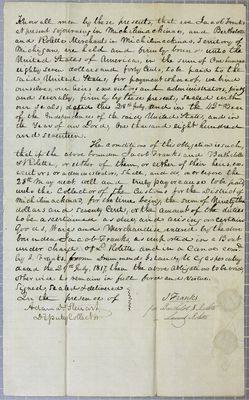 Know all men by these presents, that we Jacob Franks
at present sojourning in Michilimackinac, and Berthelotte
and Rolette Merchants in Michilimackinac, Territory of
Michigan, are held and firmly bound unto the
United States of America, in the sum of One hundred
eighty seven dollars and forty Cents, to be paid to the
said United States, for payment whereof, we bind
ourselves, our heirs, executors and administrators, jointly
and severally, firmly by these presents, Sealed with
our Seals, dated the 28th day July, in the 42nd Year
of the Independence of the said United States, and in
the Year of our Lord, One thousand eight hundred
and seventeen.
The condition of this obligation is such,
that if the above bounden Jacob Franks and Berthelotte
& Rolette, or either of them, or either of their heirs, exe-
cutors or administrators, Shall, and do, on or before the
28th May next well and truly pay or cause to be paid
unto the Collector of the Customs for the District of
Michilimackinac, for the time being, the sum of Ninety three
dollars and Seventy Cents, or the amount of the duties
to be ascertained as due, and arising on certain
Goods, Wares and Merchandise entered by the above
bounden Jacob Franks, as imported in a Boat
under charge of Rolette and in a Canoe com'd
by J. Franks, from Drummonds Island, U. C. as per entry
dated the 28th July, 1817, then the above obligation to be void,
otherwise to remain in full force and virtue.
Signed, Sealed & delivered
In the presence of
Adam D. Steuart
Deputy Collector
J Franks